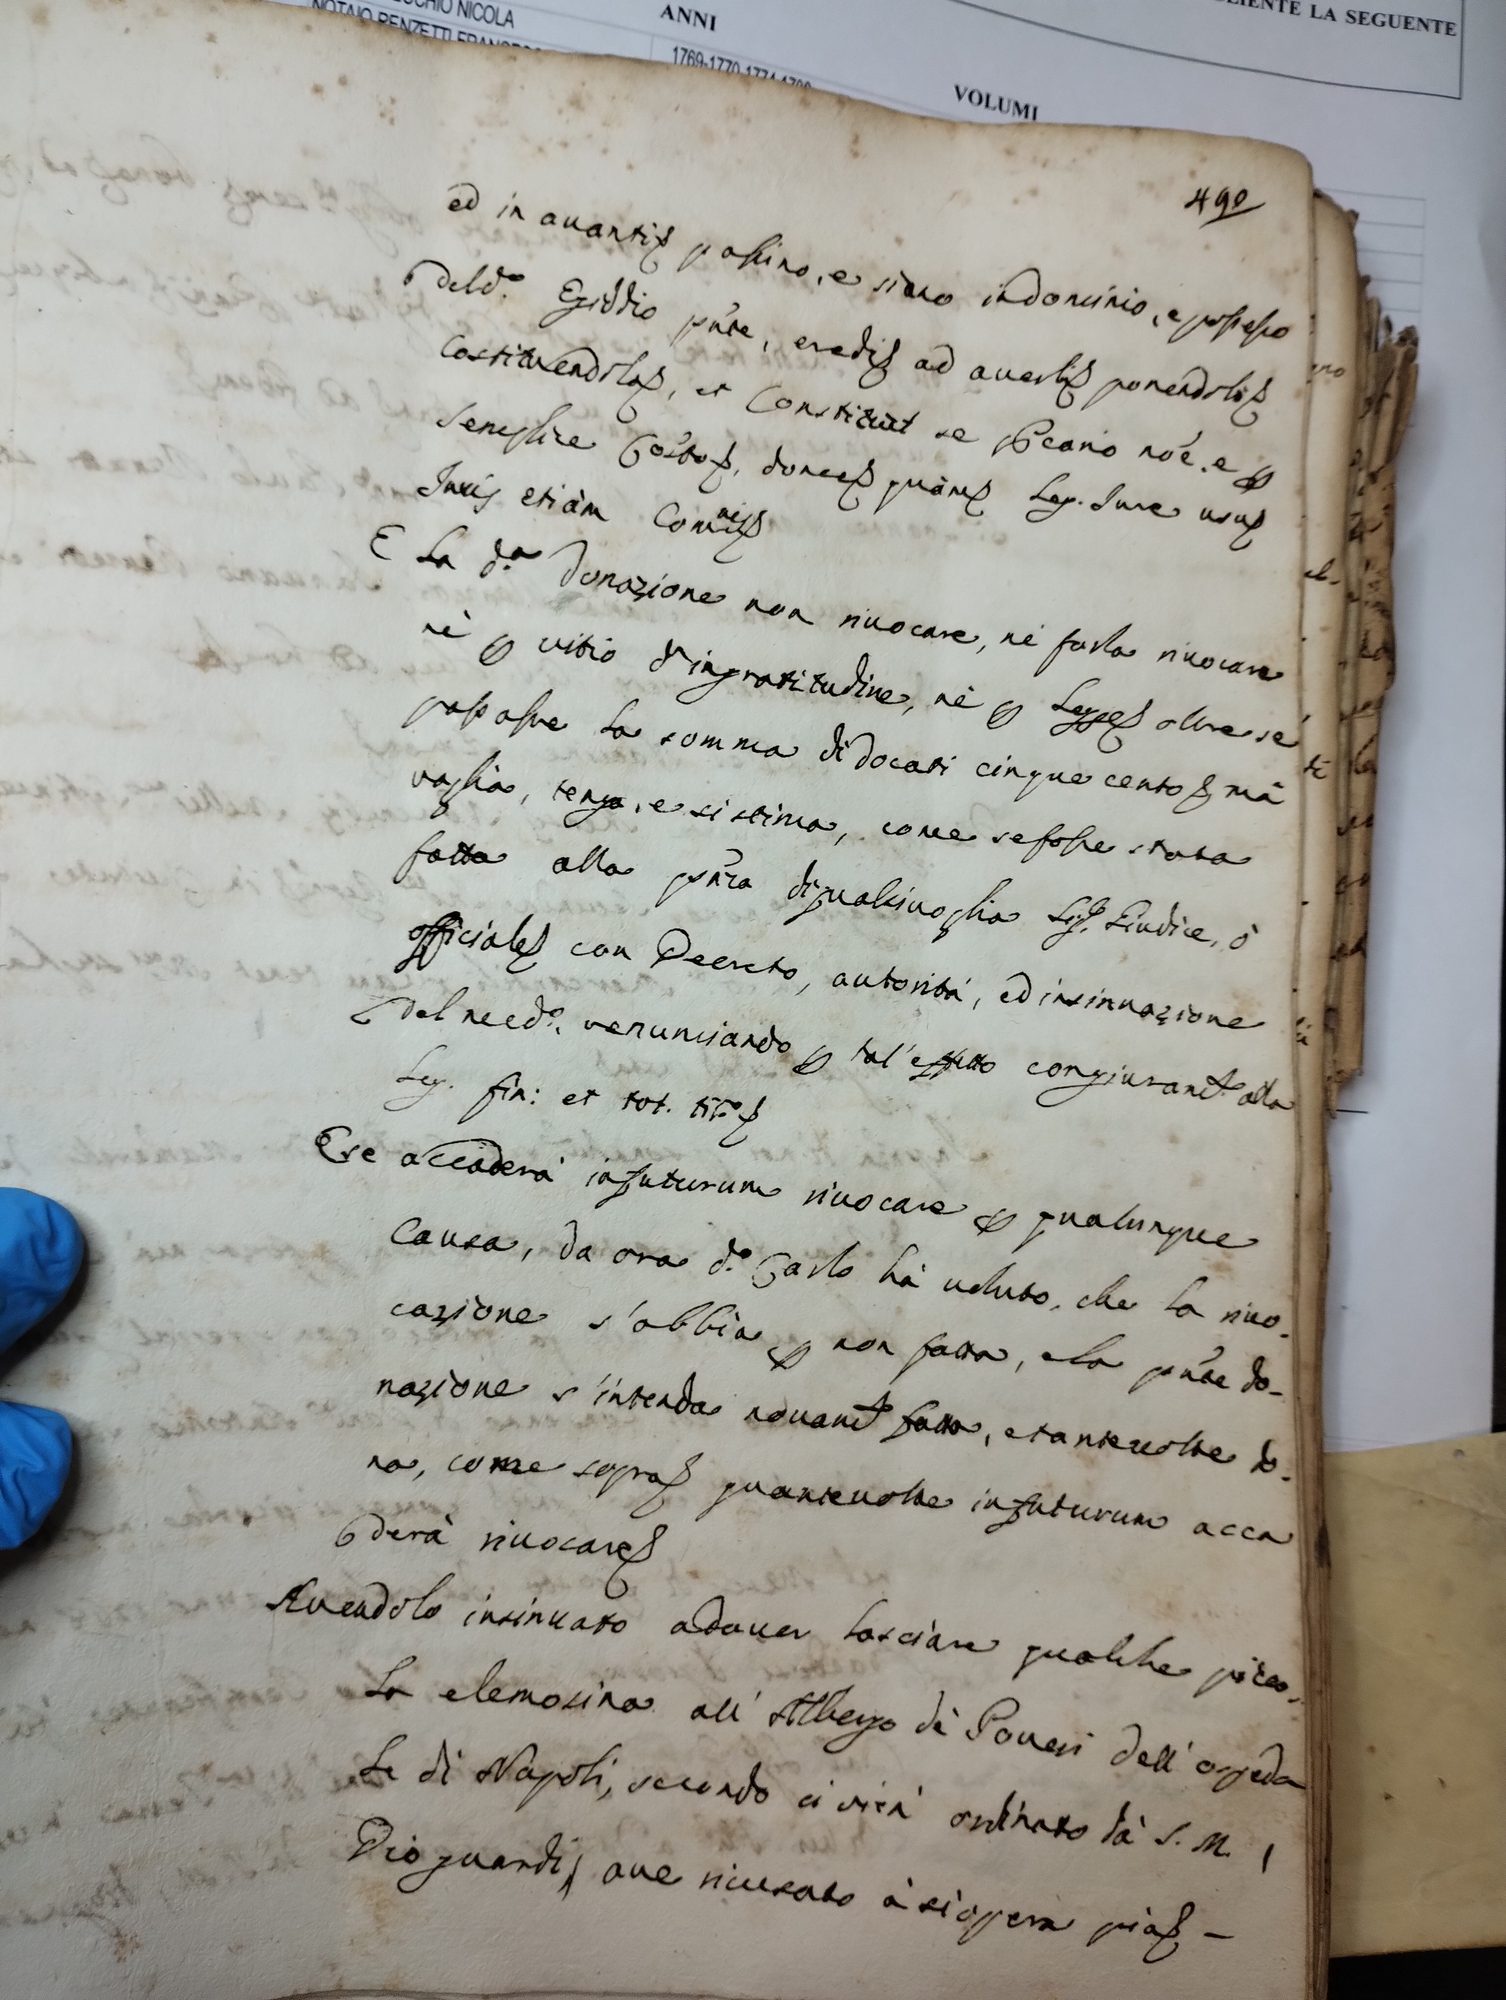 NOTAIO RENZETTI
NICOLA
ANNI
1769-1770-1774
VOLUMI
LA SEGUENTE
490
ed in avanti passino, e siano in dominio, e possesso
del d.o Egiddio pn̄te, eredi ad averli ponendoli
Costituendolo, et Constituit se nōe, e
Semplice donec quàm Leg. Jure usus
Juris etiàm Com̄nis
E la d.a donazione non rivocare, nè farla rivocare
nè p vitio d'ingratitudine, nè p Legge oltre se
passasse la somma di docati cinque cento mà
vaglia, tenga, e si stima, come se fosse stata
fatta alla pn̄za di qualsivoglia Sig.r Giudice, ò
officiale con Decreto, autorità, ed insinuazione
del need.o renunciando p tal'effetto con giuram.to alla
Leg. fin: et tot. tit.o
E se accaderà in futurum rivocare p qualunque
Causa, da ora d.o Carlo hà voluto, che la rivo-
cazione s'abbia p non fatta, e la pn̄te do-
nazione s'intenda novam.t fatta, e tante volte do-
na, come sopra quante volte in futurum acca
derà rivocare
Avendolo insinuato a dover lasciare qualche picco-
la elemosina all'Albergo dè Poveri dell'ospeda
le di Napoli, secondo ci vien ordinato dà S. M.
Dio guardi, ave ricusato à sì opera pia –